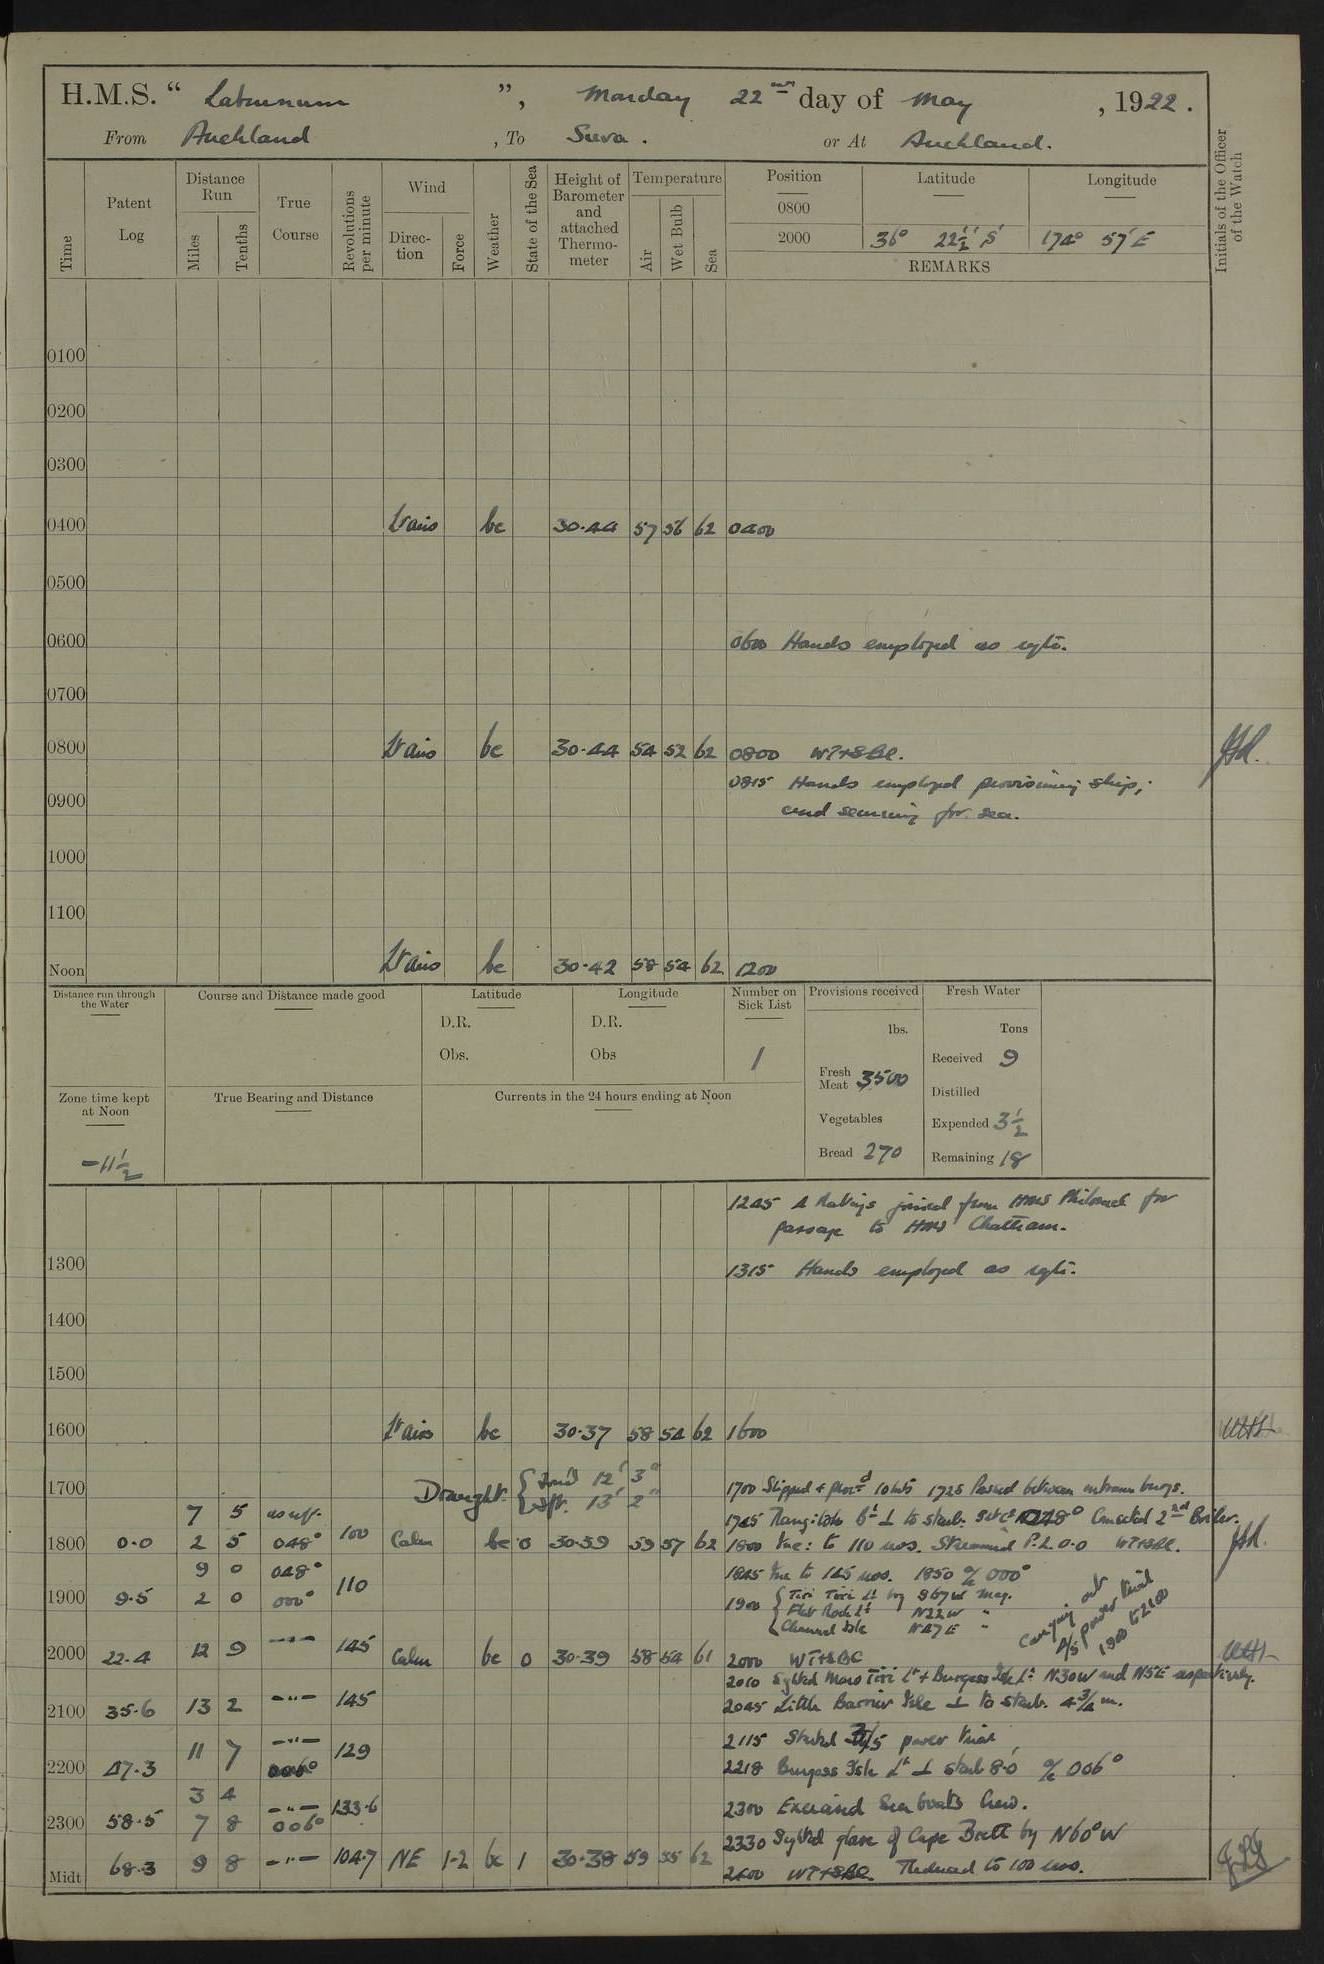 H.M.S. “ Laburnum ”, Monday 22nd day of May , 1922.
From Auckland , To Suva . or At Auckland.
Time
Patent Log
Distance Run
Miles
Tenths
True Course
Revolutions per minute
Wind
Direc-tion
Force
Weather
State of the Sea
Height of Barometer and attached Thermo-meter
Temperature
Air
Wet Bulb
Sea
Position Latitude Longitude
0800
2000 36° 22½' S 174° 57' E
REMARKS
Initials of the Officer of the Watch
0100
0200
0300
0400 Lt airs bc 30.44 57 56 62 0400
0500
0600 0600 Hands employed as reqte.
0700
0800 Lt airs bc 30.44 54 52 62 0800 WT+SBC.
0815 Hands employed provisioning ship;
0900 and securing for sea.
1000
1100
Noon Lt airs bc 30.42 58 54 62 1200
Distance run through the Water
Course and Distance made good
Latitude
D.R.
Obs.
Longitude
D.R.
Obs
Number on Sick List
1
Provisions received
lbs.
Fresh Meat 3500
Vegetables
Bread 270
Fresh Water
Tons
Received 9
Distilled
Expended 3½
Remaining 18
Zone time kept at Noon
-11½
True Bearing and Distance
Currents in the 24 hours ending at Noon
1245 4 Ratings joined from HMS Philomel for
passage to HMS Chatham.
1300 1315 Hands employed as reqte.
1400
1500
1600 Lt airs bc 30.37 58 54 62 1600
1700 Draught { For'd 12' 3" 1700 Slipped + proc'd 1725 Passed between entrance buoys.
7 5 Aft. 13' 2" 1745 to starb. Connected 2nd Boiler.
1800 0.0 2 5 048° 100 Calm bc 0 30.39 59 57 62 1800 Inc: to 110 revs. Streamed P.L. 0.0 WT+SBC.
9 0 048° 1845 Inc to 145 revs. 1850 a/c 000°
1900 9.5 2 0 000° 110 1900 { Tiri Tiri Lt by S67W mag.
Flat Rock Lt N22W "
Channel Isle N47E "
Carrying out
power trial
1900 to 2100
2000 22.4 12 9 —"— 145 Calm bc 0 30.39 58 54 61 2000 WT+SBC
2010 Sighted Moko Hinau Lt + Burgess Isle Lt N30W and N5E respectively.
2100 35.6 13 2 —"— 145 2045 Little Barrier Isle ⊥ to starb. 4¾ m.
11 7 —"— 129 2115 Started 3/5 power trial
2200 47.3 2218 Burgess Isle Lt ⊥ starb 8.0' a/c 006°
3 4 —"— 133.6 2300 Exercised Sea boats Crew.
2300 58.5 7 8 006° 2330 Sighted glare of Cape Brett by N60°W
Midt 68.3 9 8 —"— 104.7 NE 1-2 bc 1 30.38 59 55 62 2400 WT+SBC. Reduced to 100 revs.